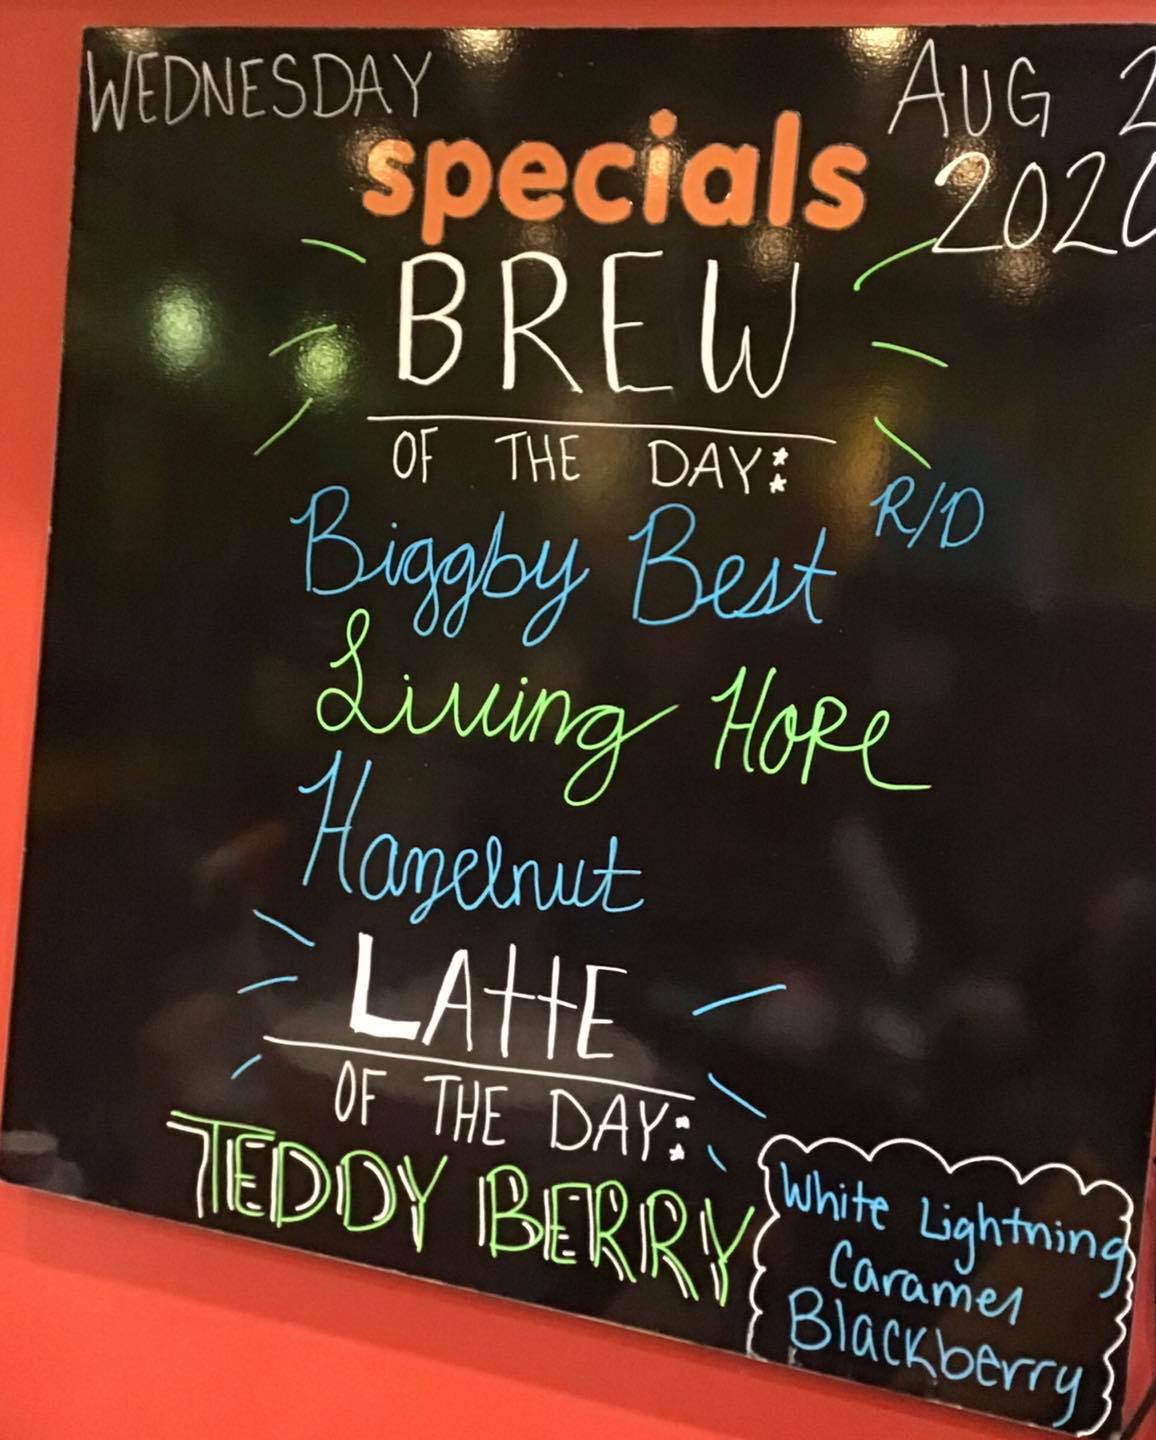 WEDNESDAY
AUG 2
2020
specials
BREW
OF THE DAY:
Biggby Best R/D
Living Hope
Hazelnut
LATTE
OF THE DAY:
TEDDY BERRY
White Lightning
Caramel
Blackberry